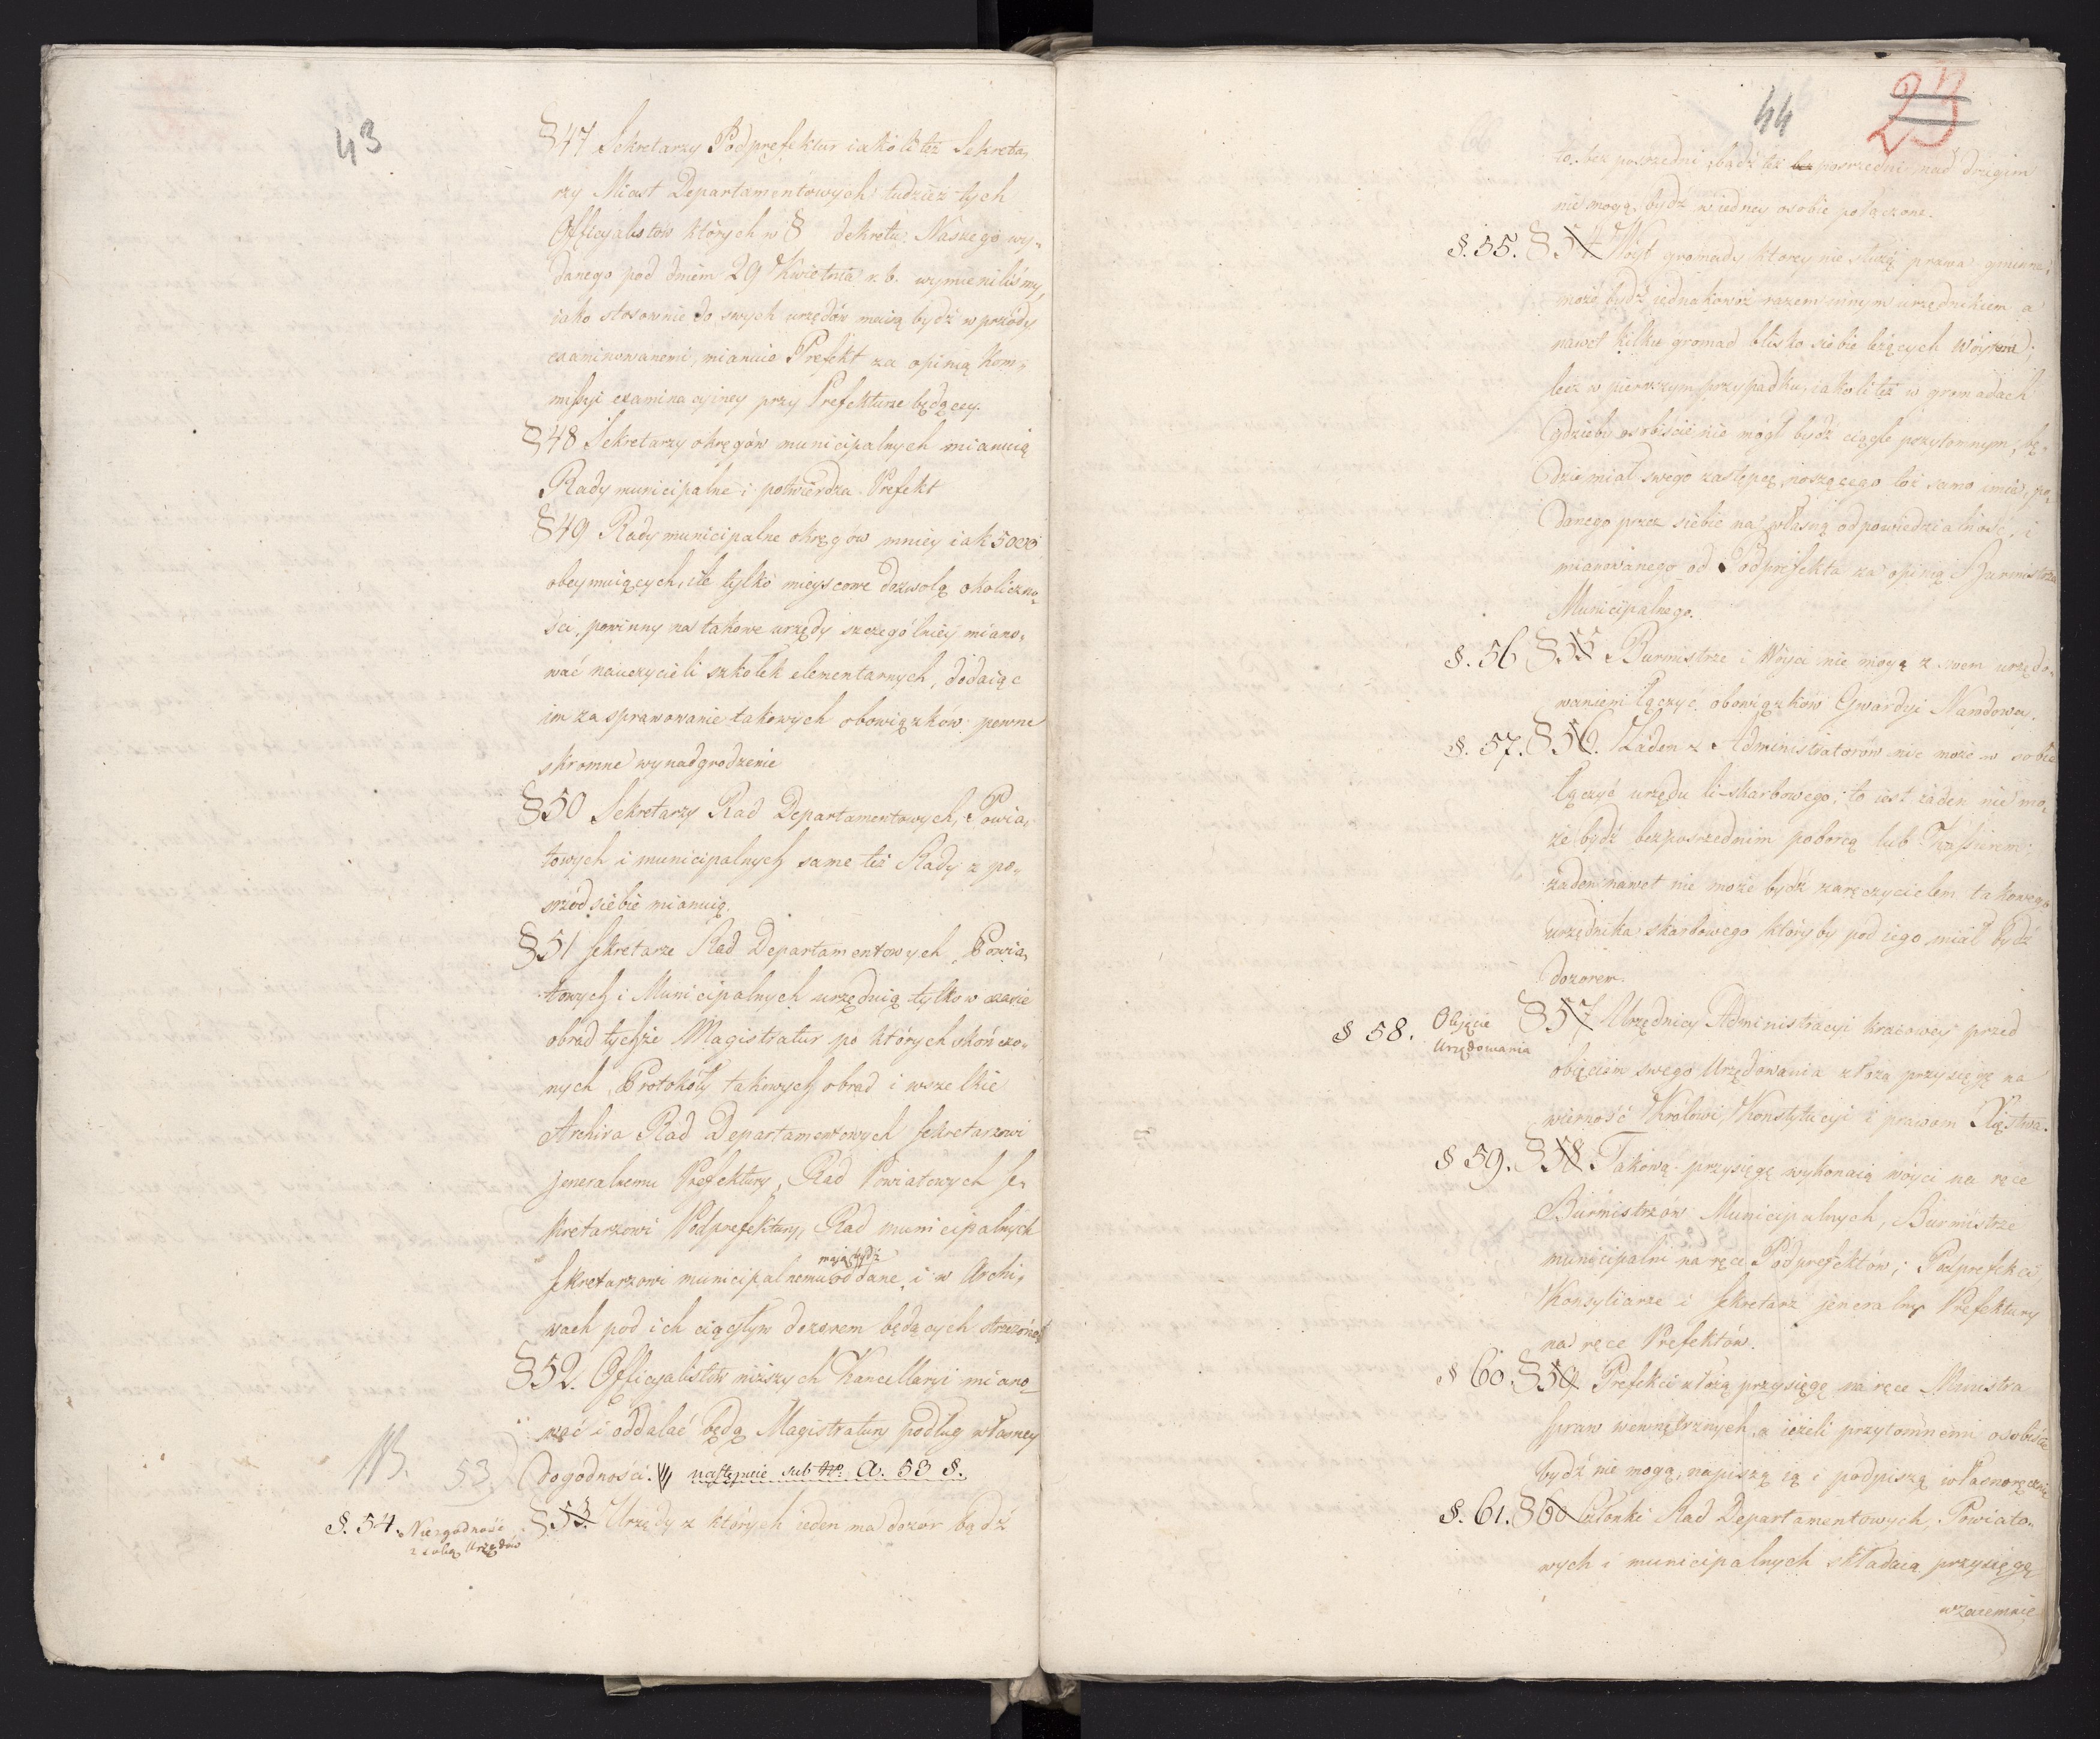 43
§47 Sekretarzy Podprefektur iako li też Sekreta,
rzy Miast Departamentowych tudzież tych
Officyalistów których w § dekretu Naszego wy,
danego pod dniem 29 Kwietnia r. b. wymieniliśmy,
iako stosownie do swych urzędów maią bydź wprzódy
examinowanemi, mianuie Prefekt za opinią Kom,
missyi examinacyiney przy Prefekturze będącey.
§48 Sekretarzy okręgów municipalnych mianuią
Rady municipalne i potwierdza Prefekt
§49 Rady municipalne okręgów mniey iak 5000
obeymuiących, ile tylko mieyscowe dozwolą okoliczno,
ści, powinny na takowe urzędy szczególniey miano,
wać nauczycieli szkółek elementarnych, dodaiąc
im za sprawowanie takowych obowiązków pewne
skromne wynadgrodzenie
§50 Sekretarzy Rad Departamentowych, Powia,
towych i municipalnych same też Rady z po,
śród siebie mianuią.
§51 Sekretarze Rad Departamentowych, Powia,
towych i Municipalnych urzęduią tylko w czasie
obrad tychże Magistratur po których skończo,
nych, Protokóły takowych obrad i wszelkie
Archiva Rad Departamentowych Sekretarzowi
Jeneralnemu Prefektury, Rad Powiatowych Se,
kretarzowi Podprefektury, Rad municipalnych
maią bydź
Sekretarzowi municipalnemu oddane, i w Archi,
wach pod ich ciągłym dozorem będących strzeżone
§52. Officyalistów niższych Kancellaryi miano,
wać i oddalać będą Magistratury podług własney
NB. 53. dogodności. następuie sub No. a. 53 §.
§. 54. Niezgodność z sobą Urzędów
§ 53. Urzędy z których ieden ma dozór bądź
44 23
to bez pośrzedni, bądź też pośrzedni nad drugim
nie mogą bydź w iedney osobie połączone.
§. 55. § 54 Wóyt gromady którey nie służą prawa gminne,
może bydź iednakowóż razem innym urzędnikiem, a
nawet kilku gromad blisko siebie leżących Wóytem;
lecz w pierwszym przypadku, iakoli też w gromadach
gdzieby osobiście nie mógł bydź ciągle przytomnym, bę,
dzie miał swego zastępcę noszącego toż samo imie, po,
danego przez siebie na własną odpowiedzialność, i
mianowanego od Podprefekta za opinią Burmistrza
Municipalnego.
§. 56 § 55 Burmistrze i Wóyci nie mogą z swem urzędo,
waniem łączyć obowiązków Gwardyi Narodowey.
§. 57. § 56. Żaden z Administratorów nie może w sobie
łączyć urzędu li-skarbowego; to iest żaden nie mo,
że bydź bezpośrzednim poborcą lub Kassyerem;
żaden nawet nie może bydź zaręczycielem takowego
urzędnika skarbowego któryby pod iego miał bydź
dozorem.
§ 58. Objęcie Urzędowania
§ 57 Urzędnicy Administracyi kraiowey przed
obięciem swego Urzędowania złożą przysięgę na
wierność Królowi, Konstytucyi i prawom Xięstwa.
§ 59. § 58. Takową przysięgę wykonaią wóyci na ręce
Burmistrzów Municipalnych, Burmistrze
municipalni na ręce Podprefektów; Podprefekci,
Konsyliarze i Sekretarz jeneralny Prefektury
na ręce Prefektów.
§ 60. § 59 Prefekci złożą przysięgę na ręce Ministra
spraw wewnętrznych, a ieżeli przytomnemi osobiście
bydź nie mogą, napiszą ią i podpiszą własnoręcznie
§. 61. § 60 Członki Rad Departamentowych, Powiato,
wych i municipalnych składaią przysięgę
wzaiemnie